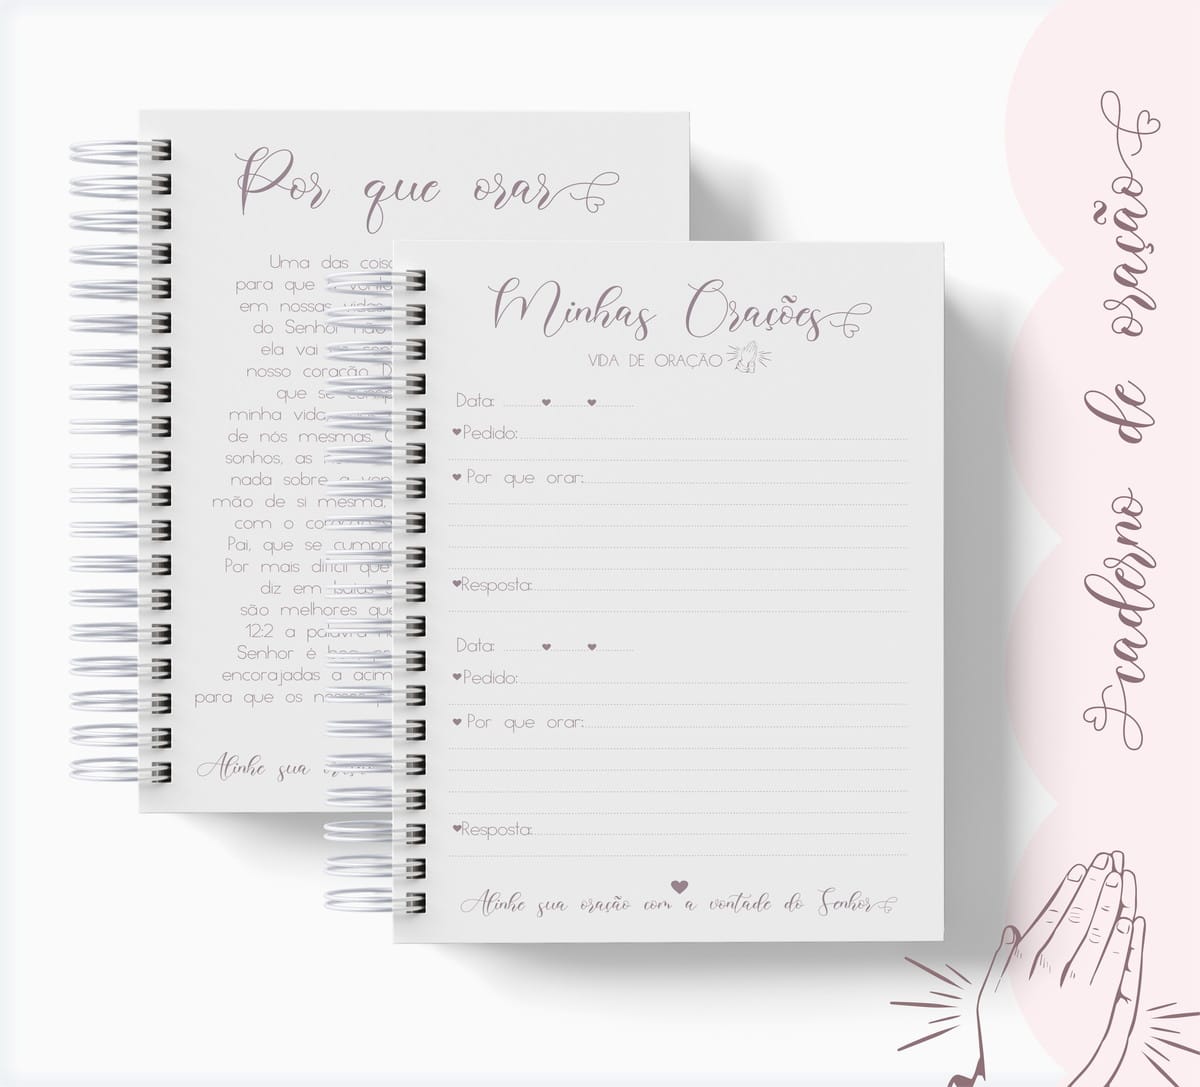 Por que orar
Uma das
para que a
em nossas vidas
do Senhor não
ela vai
nosso coração.
que se
minha vida,
de nós mesmas.
sonhos, as
nada sobre a
mão de si mesma,
com o
Pai, que se
Por mais difícil que
diz em Isaías
são melhores que
12:2 a palavra
Senhor é
encorajadas a
para que os nossos
Alinhe sua
Minhas Orações
VIDA DE ORAÇÃO
Data:
Pedido:
Por que orar:
Resposta:
Data:
Pedido:
Por que orar:
Resposta:
Alinhe sua oração com a vontade do Senhor
caderno de oração